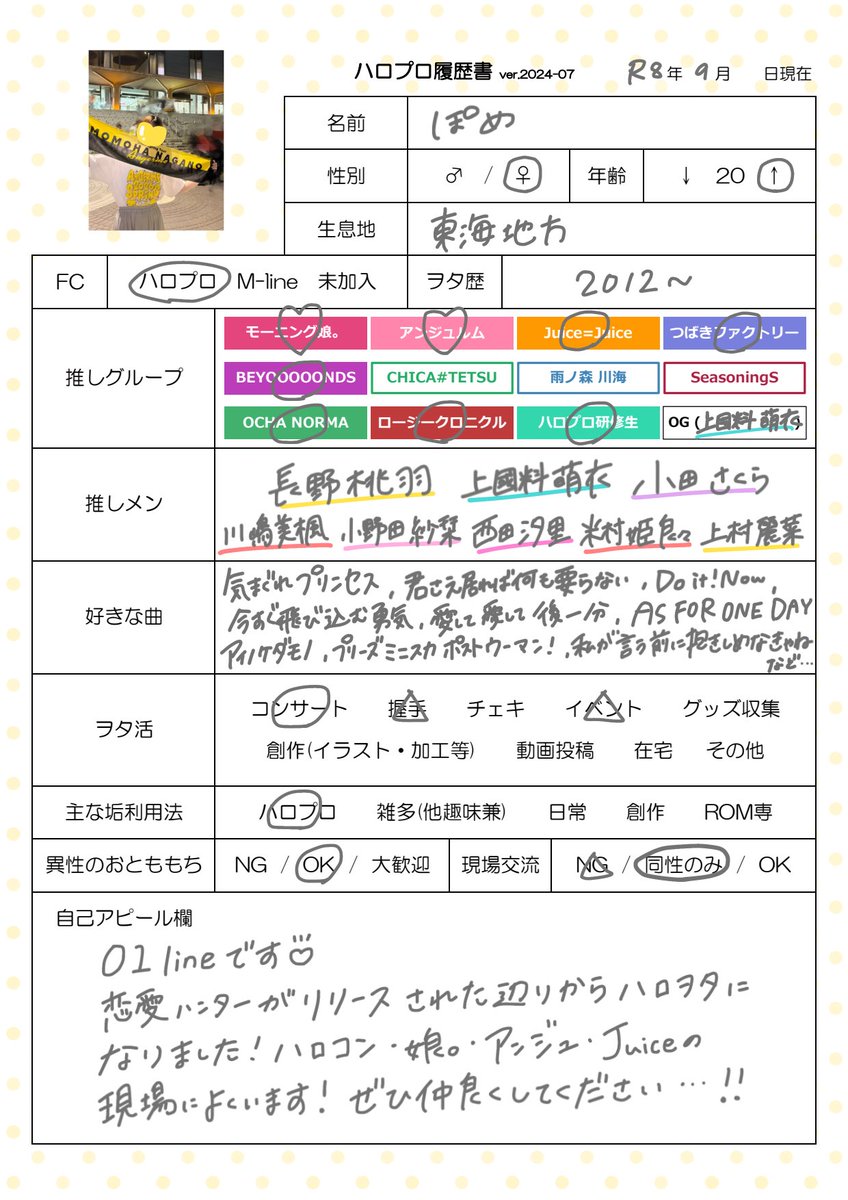 ハロプロ履歴書 ver.2024-07 R8年 9月 日現在
MOMOHA NAGANO
名前 ぽめ
性別 ♂ / ♀ 年齢 ↓ 20 ↑
生息地 東海地方
FC ハロプロ M-line 未加入 ヲタ歴 2012~
モーニング娘。 アンジュルム Juice=Juice つばきファクトリー
推しグループ BEYOOOOONDS CHICA#TETSU 雨ノ森 川海 SeasoningS
OCHA NORMA ロージークロニクル ハロプロ研修生 OG (上國料萌衣)
推しメン 長野桃羽 上國料萌衣 小田さくら
川嶋美楓 小野田紗栞 西田汐里 米村姫良々 上村麗菜
好きな曲 気まぐれプリンセス, 君さえ居れば何も要らない, Do it! Now,
今すぐ飛び込む勇気, 愛して愛して後一分, AS FOR ONE DAY
アイノケダモノ, プリーズミニスカポストウーマン!, 私が言う前に抱きしめなきゃね
など…
ヲタ活 コンサート 握手 チェキ イベント グッズ収集
創作(イラスト・加工等) 動画投稿 在宅 その他
主な垢利用法 ハロプロ 雑多(他趣味兼) 日常 創作 ROM専
異性のおとももち NG / OK / 大歓迎 現場交流 NG / 同性のみ / OK
自己アピール欄
01 lineです
恋愛ハンターがリリースされた辺りからハロヲタに
なりました! ハロコン・娘。・アンジュ・Juiceの
現場によくいます! ぜひ仲良くしてください…!!